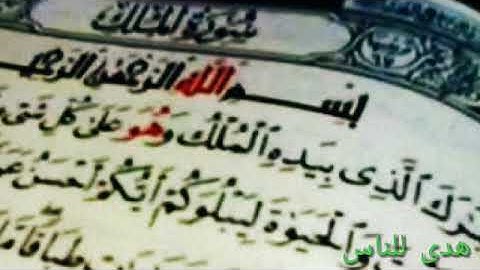 سُورَةُ الْمُلْكِ
بِسْمِ اللَّهِ الرَّحْمَٰنِ الرَّحِيمِ
الَّذِي بِيَدِهِ الْمُلْكُ وَهُوَ عَلَىٰ كُلِّ شَيْءٍ
وَالْحَيَوٰةَ لِيَبْلُوَكُمْ أَيُّكُمْ أَحْسَنُ
طِبَاقًا
هدى للناس